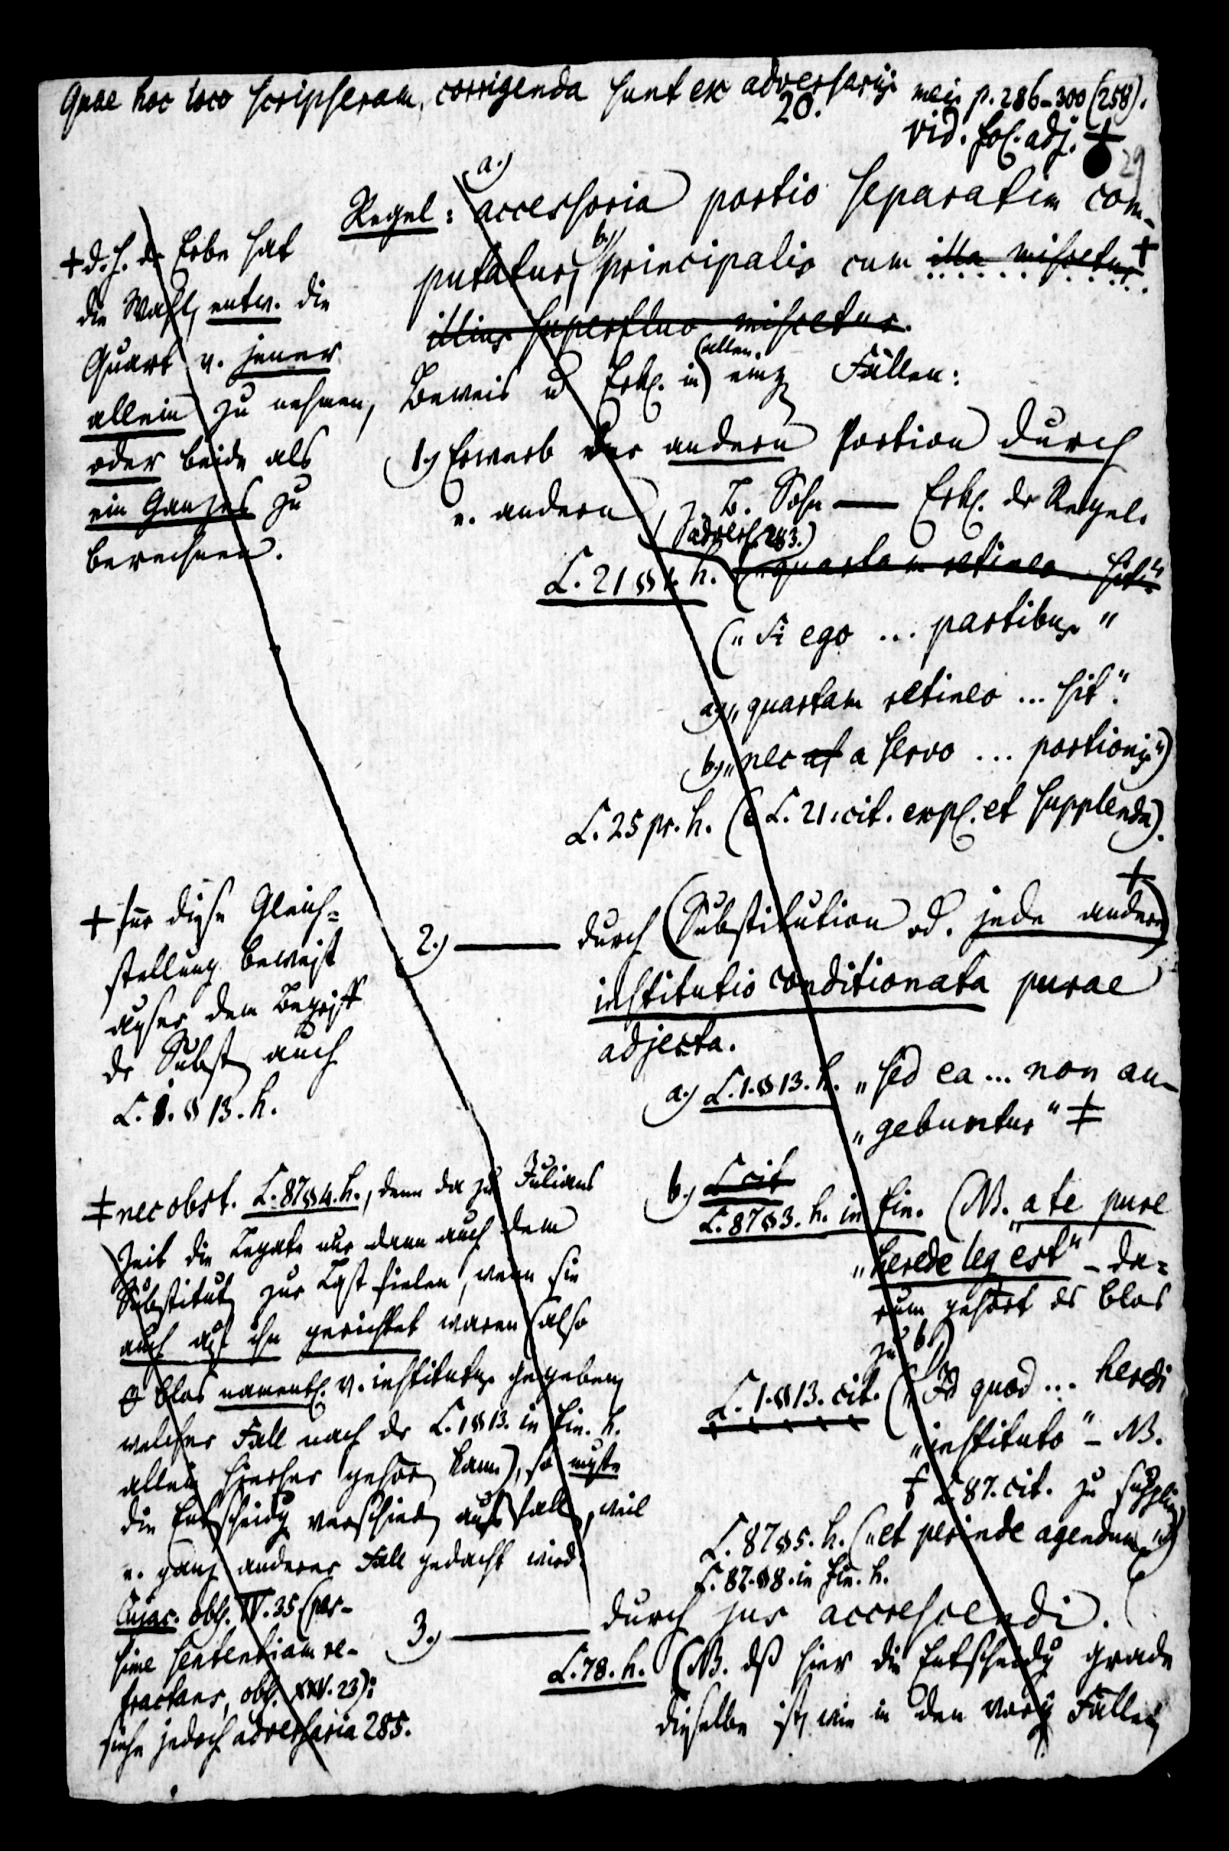 Quae hoc loco scripseram, corrigenda sunt ex adversariis meis p. 286-300 (258).
20.
vid. fol. adj. +
29
Regel: a.) accessoria portio separatim com-
putatur, b.) principalis cum illa miscetur +
illius superfluo miscetur.
Beweis u Erkl. in allen einz Fällen:
1.) Erwerb der andern Portion durch
e. andern, z. B. Sohn — Erkl. der Regel.
(advers. 283.)
L. 21 § 1. h. („quartam retineo .. sit“
(„si ego ... partibus“
a.) „quartam retineo ... sit“.
b.) „nec a servo ... portionis“)
L. 25 pr. h. (e L. 21. cit. expl. et supplenda).
2.) — durch (Substitution od. jede andere) +
institutio conditionata purae
adjecta.
a.) L. 1. § 13. h. „sed ea ... non au-
„gebuntur“ ‡
b.) L cit
L. 87 § 3. h. in fin. (NB. „a te pure
„herede leg est“ – da-
rum gehört es blos
zu b.)
L. 1. § 13. cit. („Id quod ... heredi
„instituto“ – NB.
L 87. cit. zu
L. 87 § 5. h. („et perinde agendum“)
L. 87. § 8. in fin. h.
3.) — durch jus accrescendi.
L. 78. h. (NB. dß hier die Entscheidg grade
dieselbe ist, wie in den vorig Fällen
+ d. h. der Erbe hat
die Wahl, entw. die
Quart v. jener
allein zu nehmen,
oder beide als
ein Ganzes zu
berechnen.
+ für diese Gleich-
stellung beweist
außer dem Begriff
der Subst auch
L. 1. § 13. h.
‡ nec obst. L. 87 § 4. h., denn da zu Julians
Zeit die Legate nur dann auch dem
Substitut zur Last fielen, wenn sie
auch auf ihn gerichtet waren (also
blos namentl. v. institutus gegeben
welcher Fall nach der L. 1 § 13. in fin. h.
allein hierher gehör kann), so mußte
die Entscheidg verschied ausfall, weil
e. ganz anderer Fall gedacht wird.
Cujac. obs. IV. 35 (per-
sime sententiam re-
tractans, obs. XXV. 23):
siehe jedoch adversaria 285.